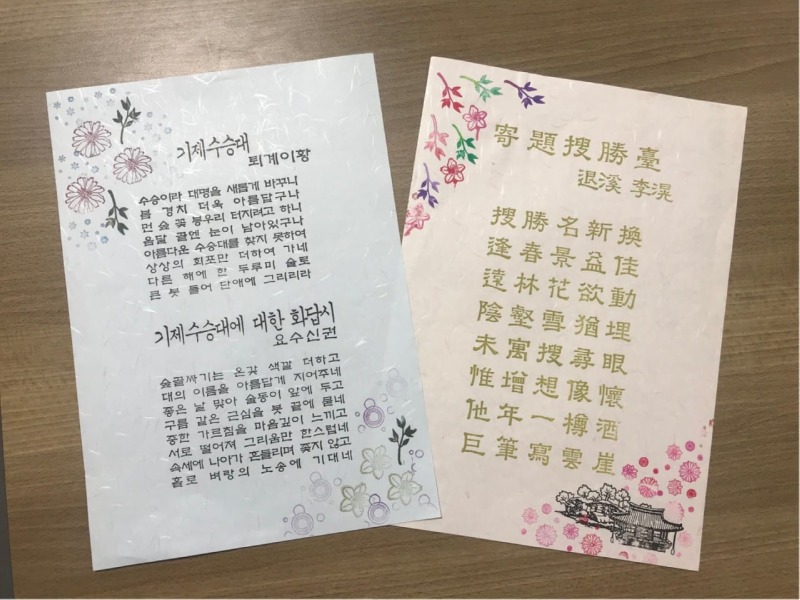 기제수승대
퇴계이황
수승이라 대명을 새롭게 바꾸니
봄 경치 더욱 아름답구나
먼숲 꽃봉우리 터지려고 하니
음달 골엔 눈이 남아있구나
아름다운 수승대를 찾지 못하여
상상의 회포만 더하여 가네
다른 해에 한 두루미 술로
큰 붓 들어 단애에 그리리라
기제수승대에 대한 화답시
요수신권
숲골짜기는 온갖 색깔 더하고
대의 이름을 아름답게 지어주네
좋은 날 맞아 술동이 앞에 두고
구름 같은 근심을 붓 끝에 묻네
중한 가르침을 마음깊이 느끼고
서로 떨어져 그리움만 한스럽네
속세에 나아가 흔들리며 좇지 않고
홀로 벼랑의 노송에 기대네
寄題搜勝臺
退溪 李滉
搜勝名新換
逢春景益佳
遠林花欲動
陰壑雪猶埋
未寓搜尋眼
惟增想像懷
他年一樽酒
巨筆寫雲崖